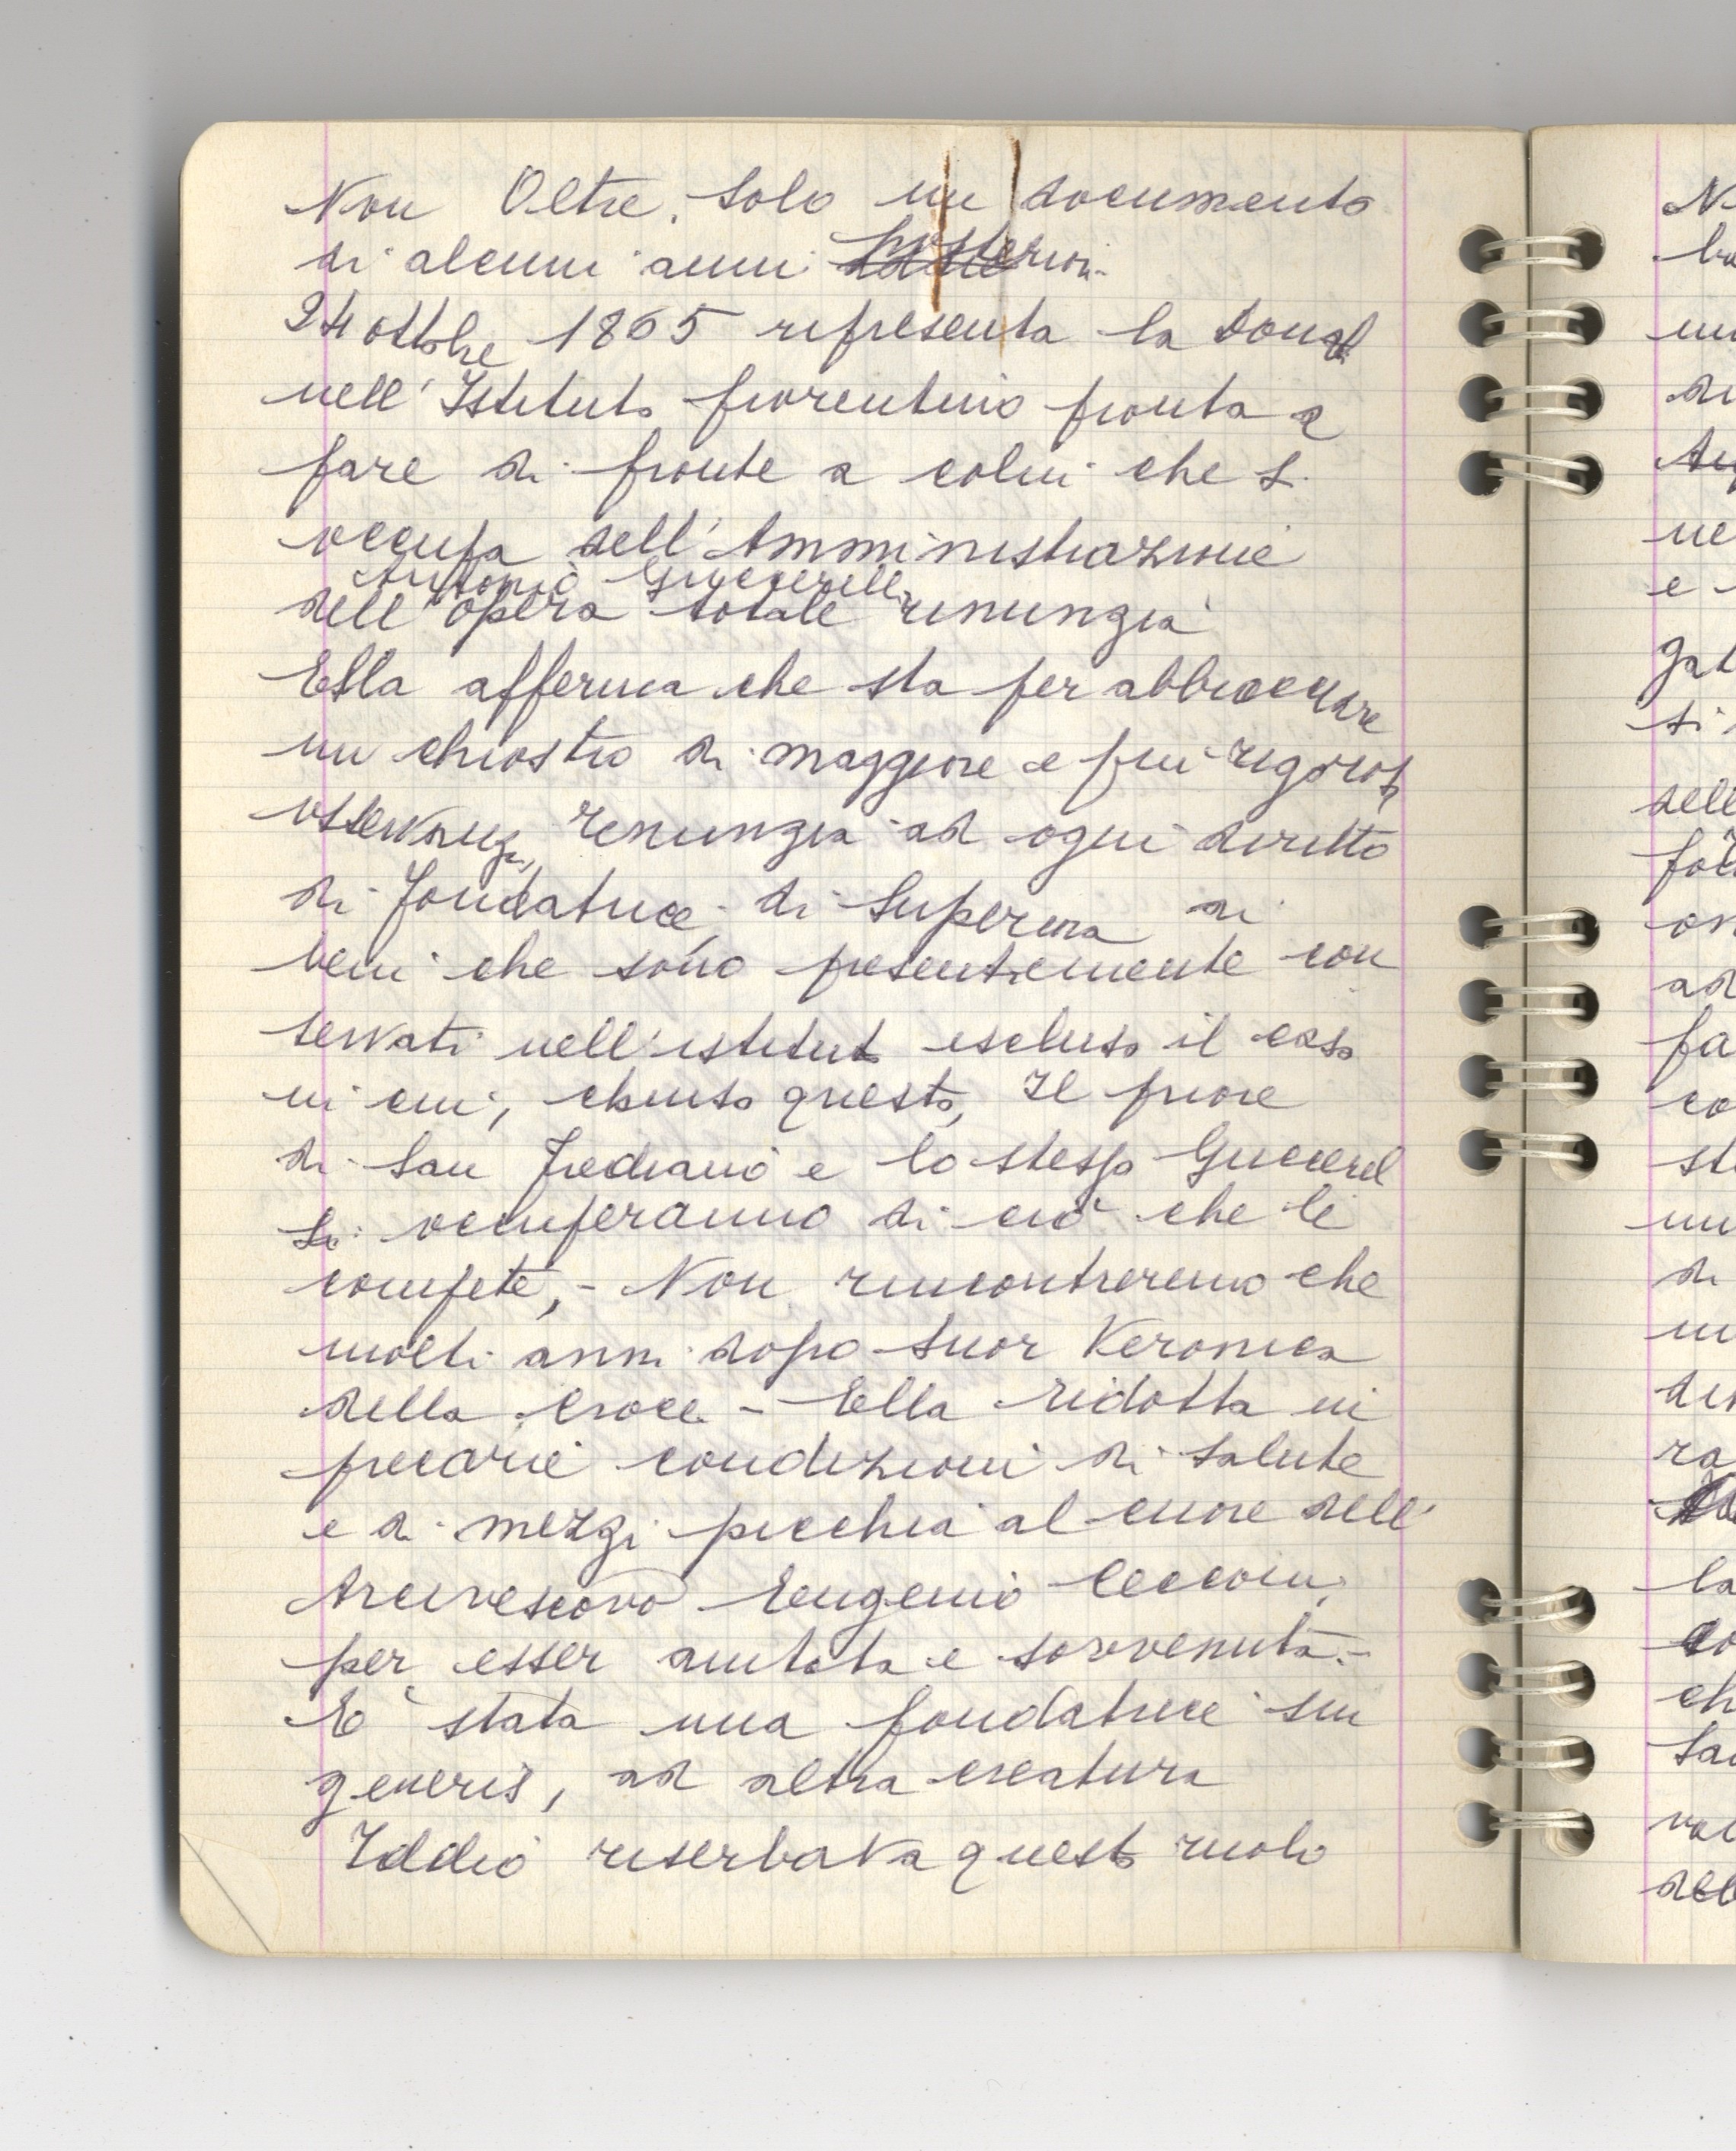 Non Oltre. Solo un documento
di alcuni anni posteriori
24 ottobre 1865 ripresenta la Donal
nell'Istituto fiorentino pronta a
fare di fronte a colui che s.
occupa dell'Amministrazione
Antonio Guccerelli
dell'opera totale rinunzia
Essa afferma che sta per abbracciare
un chiostro di maggiore e piu rigorosa
osservanza, renunzia ad ogni diritto
di fondatrice, di Superiora di
beni che sono presentemente con
servati nell'istituto escluso il caso
in cui, chiuso questo, Il priore
di San Frediano e lo stesso Guccerel
li occuperanno di ciò che le
compete, - Non rincontreremo che
molti anni dopo Suor Veronica
della Croce - Ella ridotta in
precarie condizioni di salute
e di mezzi picchia al cuore dell'
Arcivescovo Eugenio Cecconi,
per esser aiutata e sovvenuta. -
E' stata una fondatrice sui
generis, ad altra creatura
Iddio riserbava questo ruolo
N
di
e
si
dell
on
ad
fa
co
st
di
ra
la
co
ch